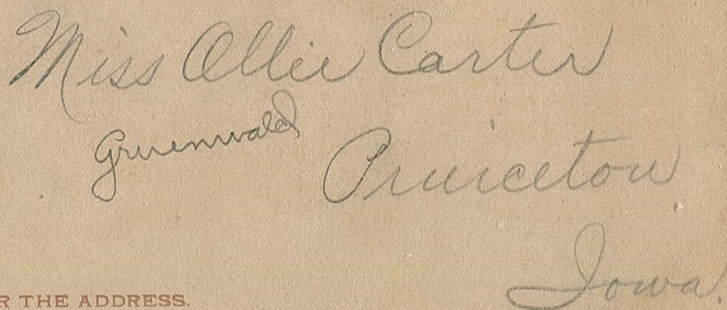 Miss Ollie Carter
Gruenwald
Princeton
Iowa.
R THE ADDRESS.